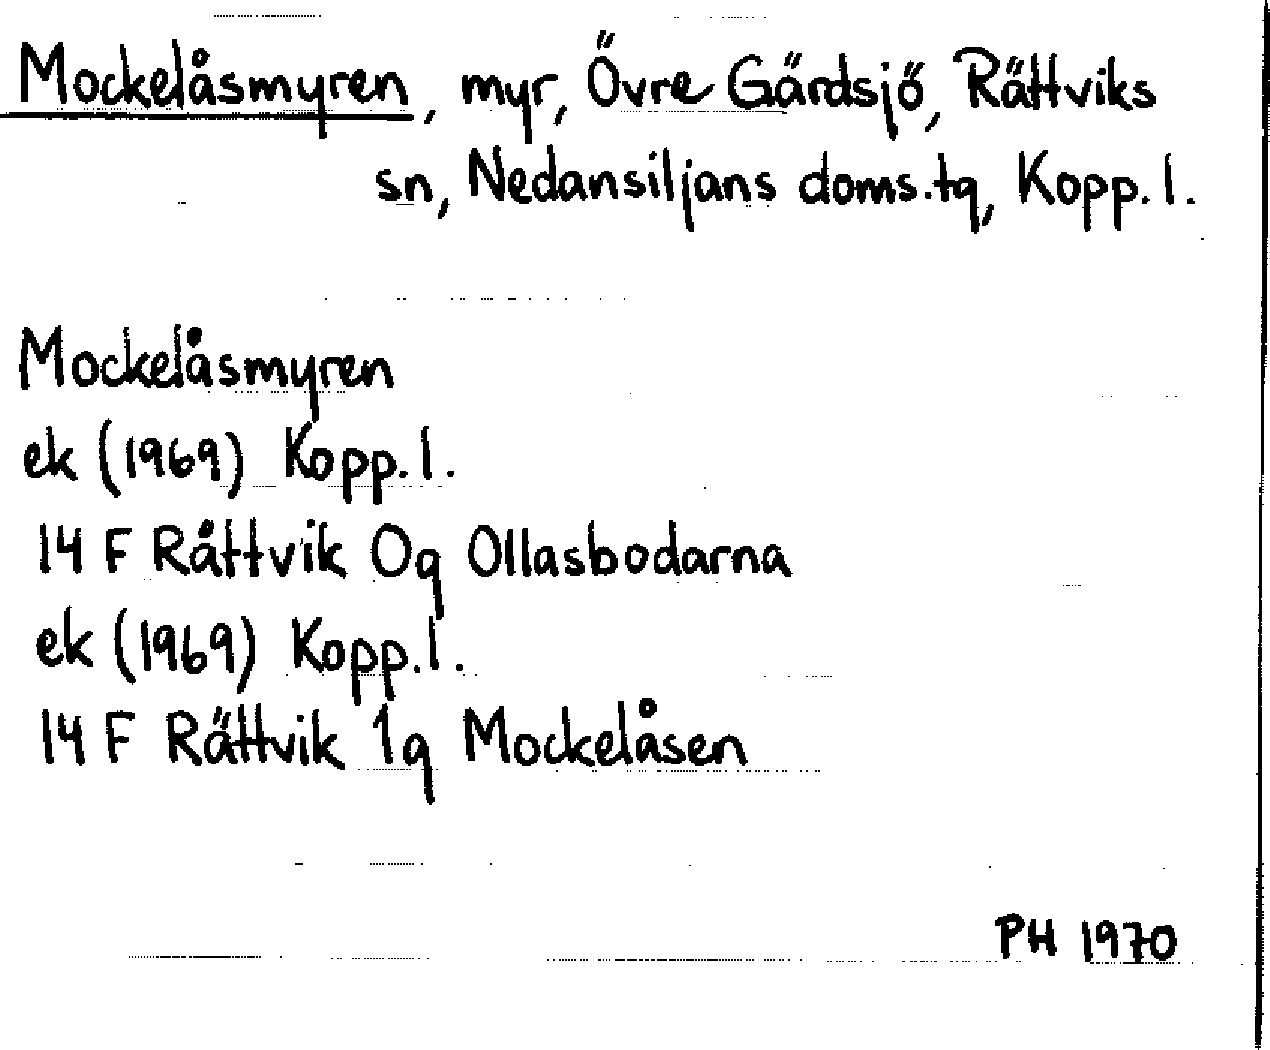 Mockelåsmyren, myr, Övre Gärdsjö, Rättviks
sn, Nedansiljans doms.tg, Kopp. l.
Mockelåsmyren
ek (1969) Kopp. l.
14 F Rättvik 0g Ollasbodarna
ek (1969) Kopp. l.
14 F Rättvik 1g Mockelåsen
PH 1970